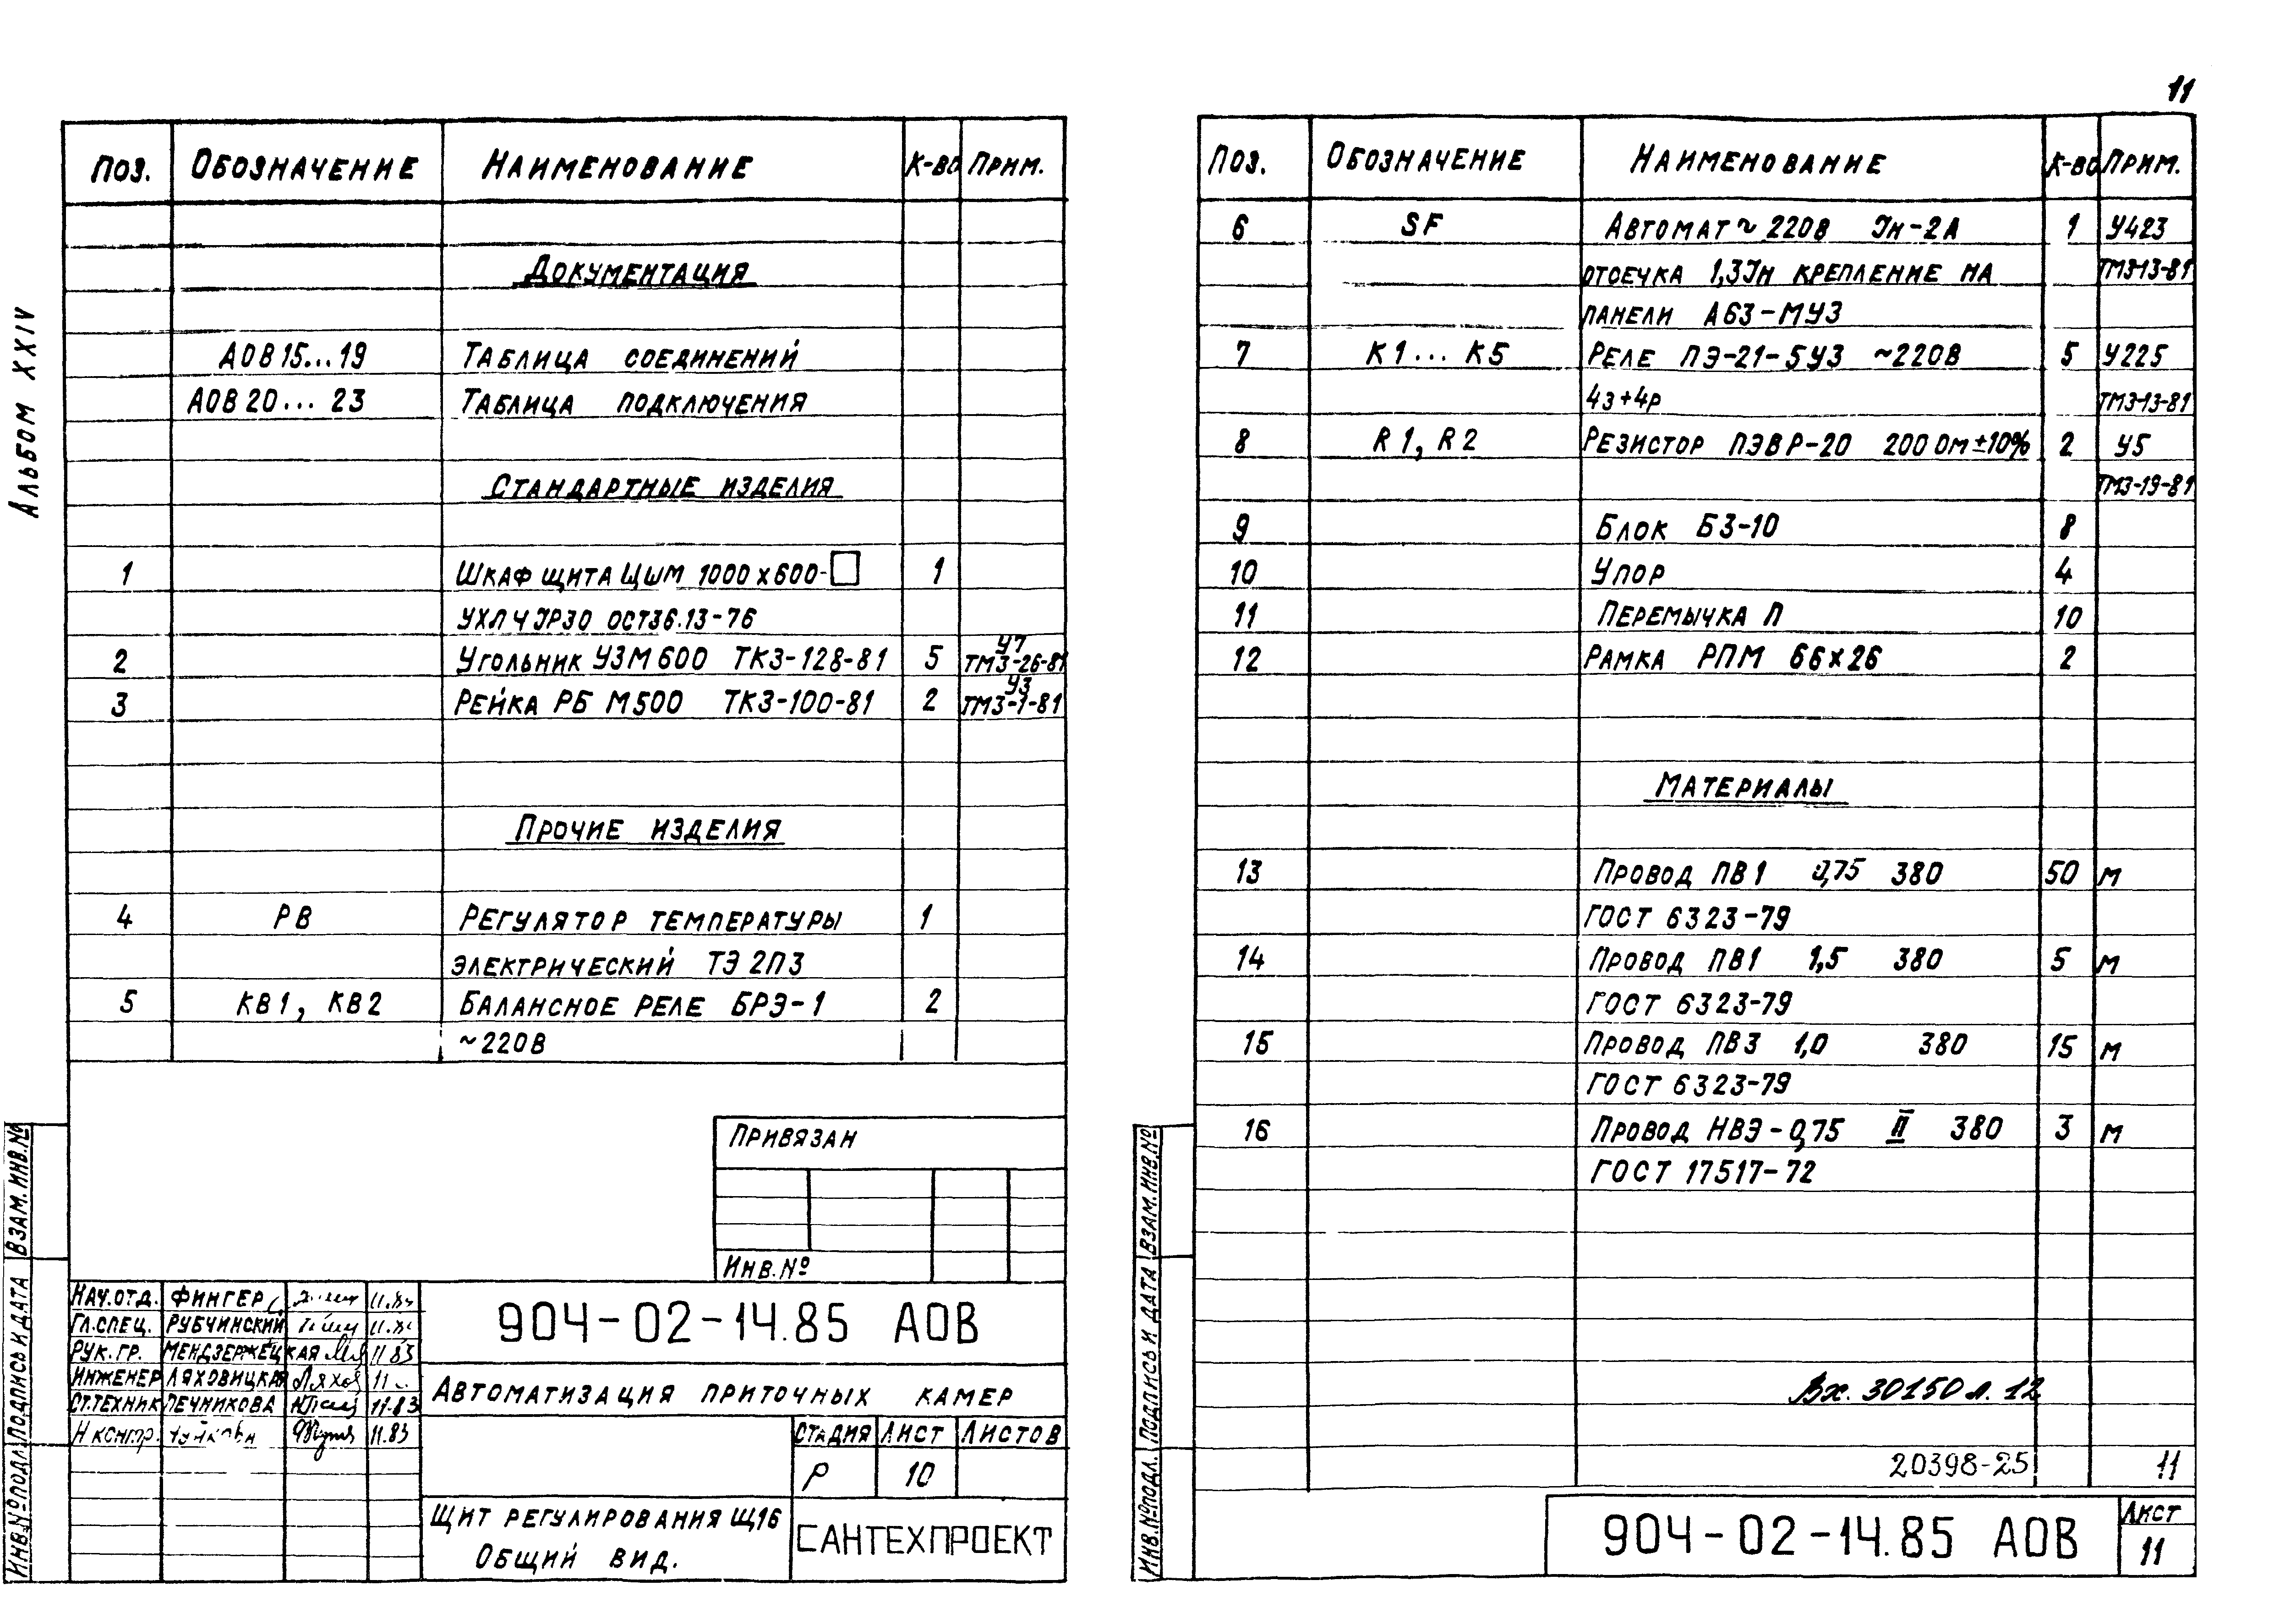 11
Альбом XXIV
Поз. Обозначение Наименование К-во Прим.
Документация
АОВ 15...19 Таблица соединений
АОВ 20...23 Таблица подключения
Стандартные изделия
1 Шкаф щита ЩШМ 1000х600-□ 1
УХЛ4 IР30 ОСТ36.13-76
2 Угольник УЗМ600 ТК3-128-81 5 У7 ТМ3-26-81
3 Рейка РБ М500 ТК3-100-81 2 У3 ТМ3-1-81
Прочие изделия
4 РВ Регулятор температуры 1
электрический ТЭ2П3
5 КВ1, КВ2 Балансное реле БРЭ-1 2
~220В
Привязан
Инв.№
Взам.инв.№
Подпись и дата
Инв.№подл.
Нач.отд. Фингер
Гл.спец. Рубчинский
Рук.гр. Мендзержецкая 11.83
Инженер Ляховицкая
Ст.техник Печникова 11.83
Н контр. 11.83
904-02-14.85 АОВ
Автоматизация приточных камер
Стадия Лист Листов
Р 10
Щит регулирования Щ16
Общий вид.
САНТЕХПРОЕКТ
Поз. Обозначение Наименование К-во Прим.
6 SF Автомат ~220В Iн-2А 1 У423
отсечка 1,3Iн крепление на ТМ3-13-81
панели А63-МУ3
7 К1...К5 Реле ПЭ-21-5У3 ~220В 5 У225
4з+4р ТМ3-13-81
8 R1, R2 Резистор ПЭВР-20 200 Ом ±10% 2 У5
ТМ3-19-81
9 Блок БЗ-10 8
10 Упор 4
11 Перемычка П 10
12 Рамка РПМ 66х26 2
Материалы
13 Провод ПВ1 0,75 380 50 м
ГОСТ 6323-79
14 Провод ПВ1 1,5 380 5 м
ГОСТ 6323-79
15 Провод ПВ3 1,0 380 15 м
ГОСТ 6323-79
16 Провод НВЭ-0,75 II 380 3 м
ГОСТ 17517-72
Вх. 30150 л. 12
20398-25 11
Взам.инв.№
Подпись и дата
Инв.№подл.
904-02-14.85 АОВ
Лист
11